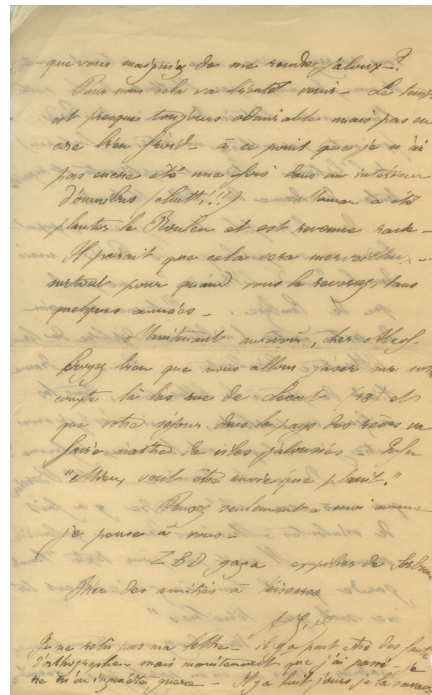 que vous craigniez de me rendre jaloux — ?
Pour nous cela va bientôt venir — Le temps
est presque toujours admirable mais pas en
core bien froid — à ce point que je n'ai
pas encore été une fois dans un intérieur
d'omnibus (chutt!!!) Maman a été
planter le Rouleu et est revenue
Il paraît que cela sera merveilleux —
surtout pour quand vous le reverrez, dans
quelques années —
Maintenant aurevoir, cher
Croyez bien que nous allons jaser sur votre
compte là bas rue de et
que votre séjour dans le pays des rêves va
faire naître de viles jalousies — Enfin
"Mieux vault être envié que plaint."
Pensez seulement à moi comme
je pense à vous —
Z B D gaga
Bien des amitiés à
Je ne relis pas ma lettre — il y a peut être des fautes
d'orthographe mais maintenant que j'ai passé — je
ne m'en inquiète guère — Il y a huit jours je